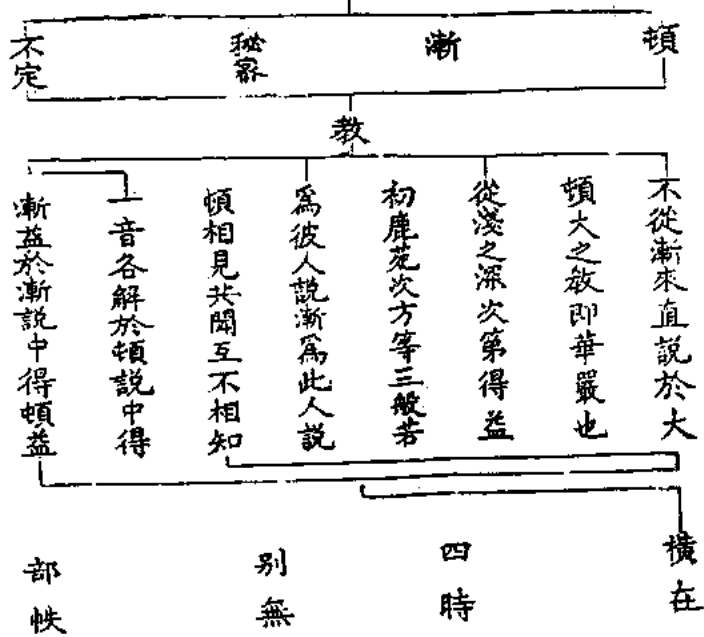 頓
漸
秘密
不定
教
不從漸來直説於大
頓大之教即華嚴也
從淺之深次第得益
初鹿苑次方等三般若
為彼人説漸為此人説
頓相見共聞互不相知
一音各解於頓説中得
漸益於漸説中得頓益
橫在
四時
别無
部帙